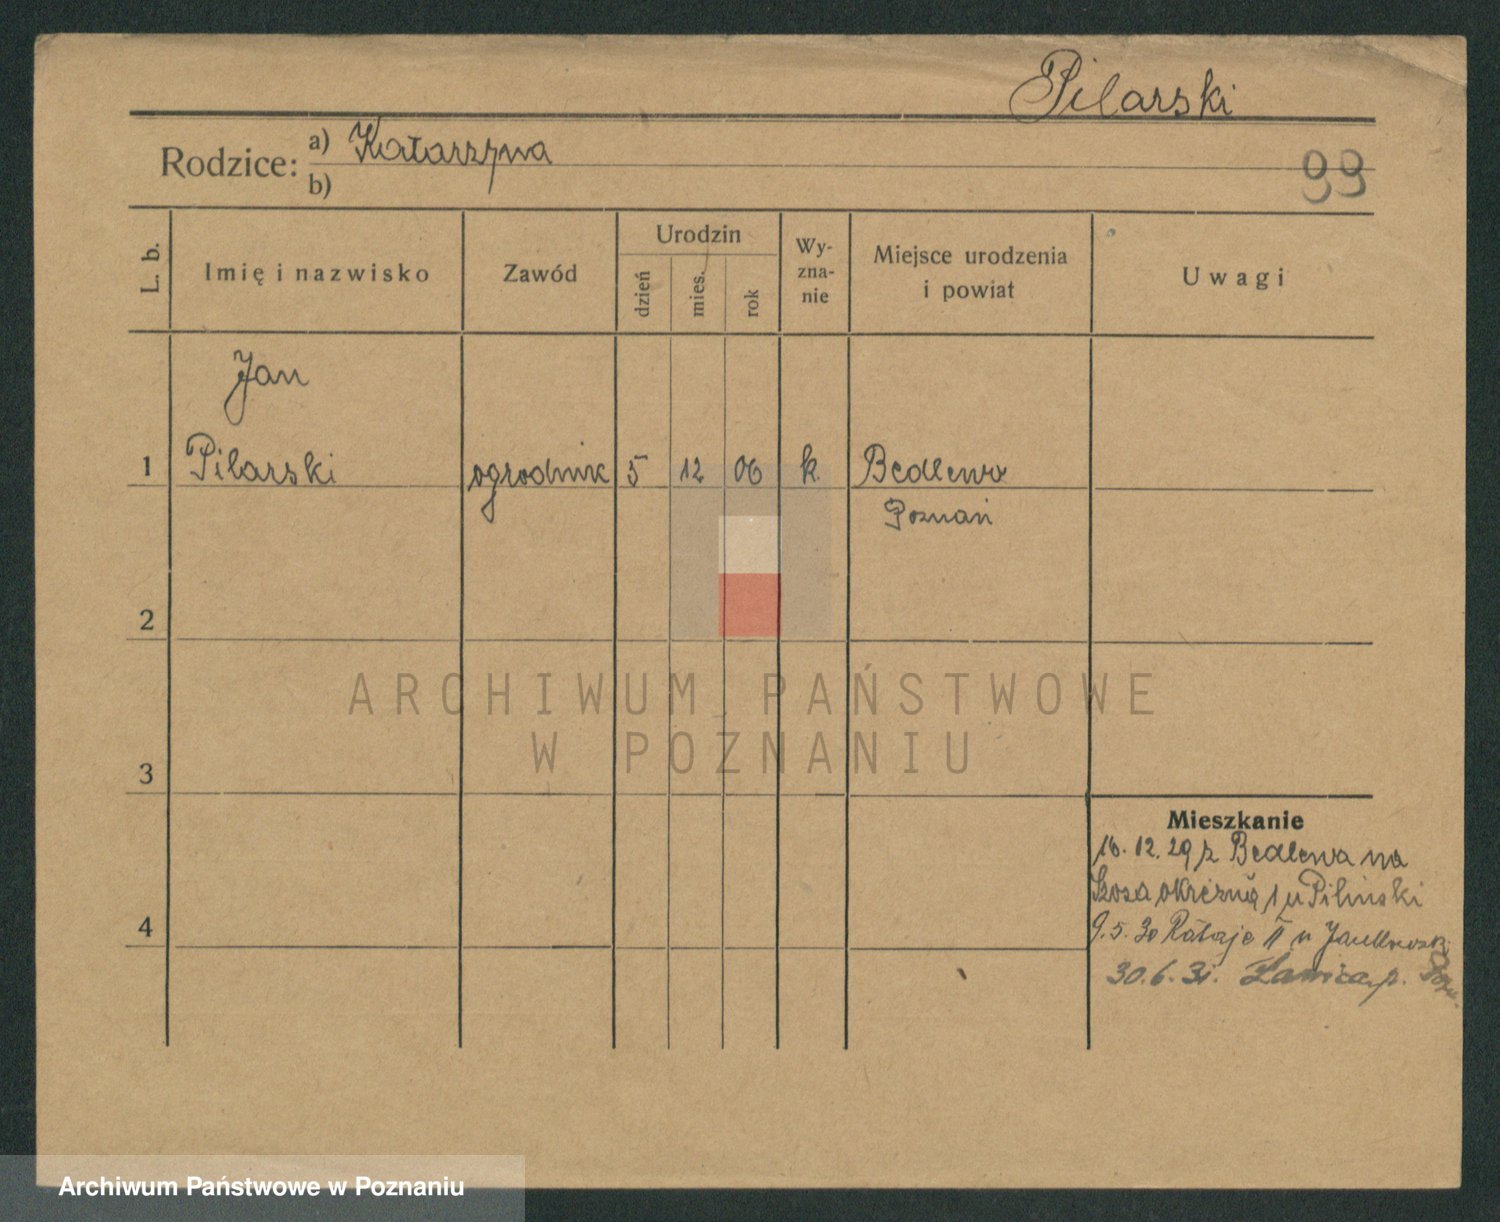 Pilarski
Rodzice: a) Katarzyna
b)
99
L. b. Imię i nazwisko Zawód Urodzin dzień mies. rok Wy-zna-nie Miejsce urodzenia i powiat Uwagi
Jan
1 Pilarski ogrodnik 5 12 06 k. Bedlewo
Poznań
2
ARCHIWUM PAŃSTWOWE
W POZNANIU
3
Mieszkanie
16.12.29 z Bedlewa na
Szosa okrężną 1 u Piliński
4
9.5.30 Rataje II u
30.6.31. Ławica p.
Archiwum Państwowe w Poznaniu